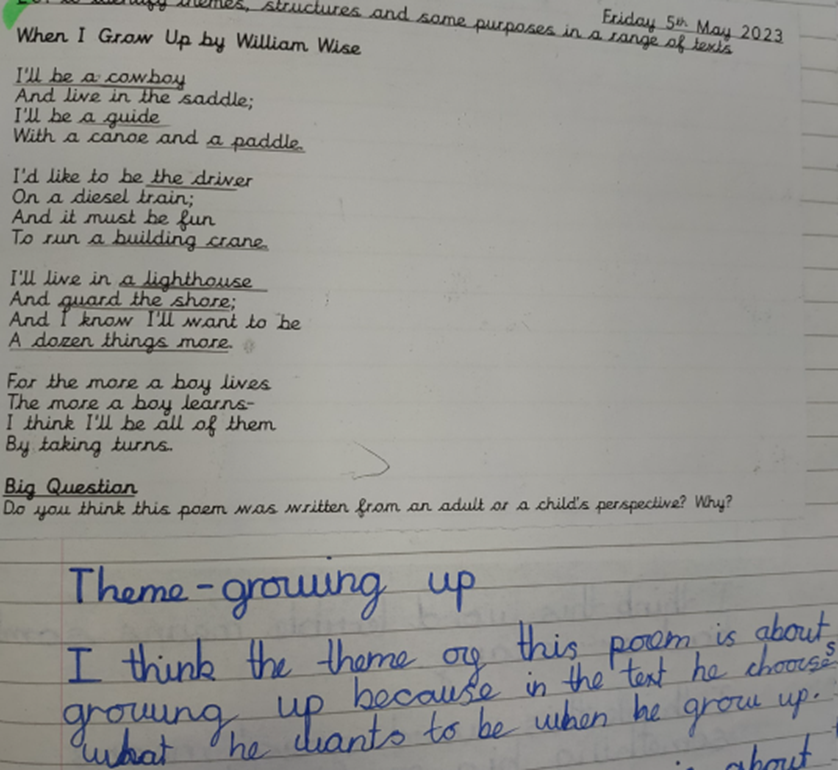 themes, structures and some purposes in a range of texts
Friday 5th May 2023
When I Grow Up by William Wise
I'll be a cowboy
And live in the saddle;
I'll be a guide
With a canoe and a paddle.
I'd like to be the driver
On a diesel train;
And it must be fun
To run a building crane.
I'll live in a lighthouse
And guard the shore;
And I know I'll want to be
A dozen things more.
For the more a boy lives
The more a boy learns-
I think I'll be all of them
By taking turns.
Big Question
Do you think this poem was written from an adult or a child's perspective? Why?
Theme-growing up
I think the theme og this poem is about
growing up because in the text he chooses
what he wants to be when he grow up.
about